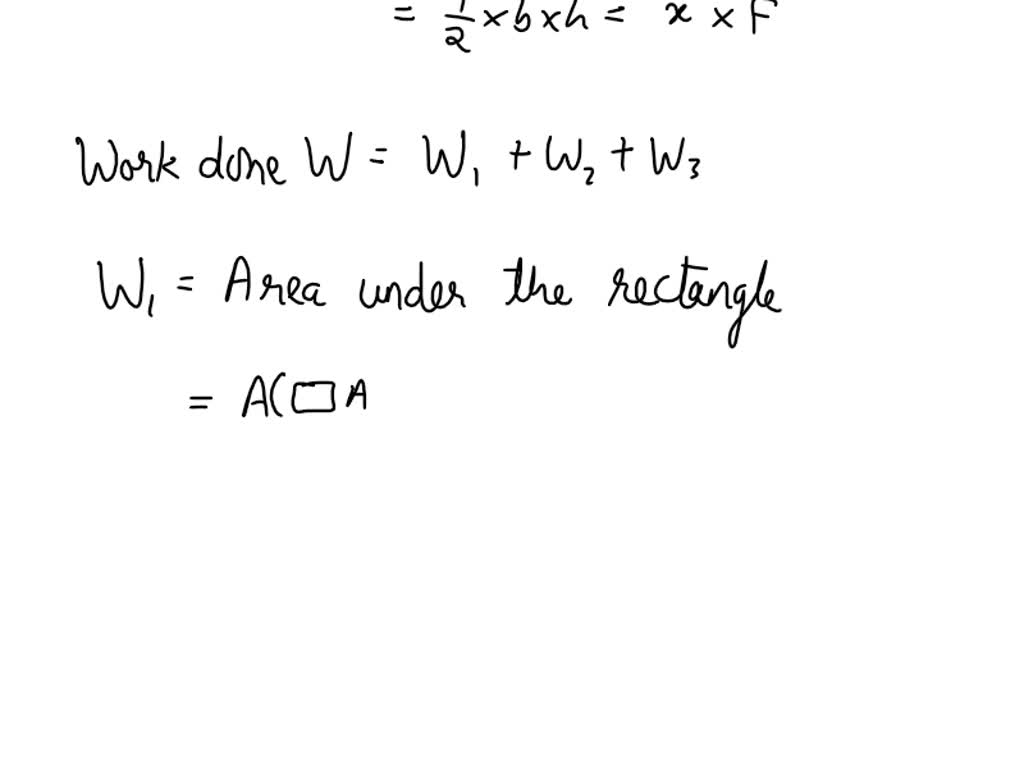 = 1/2 × b × h = x × F
Work done W = W₁ + W₂ + W₃
W₁ = Area under the rectangle
= A(□ A